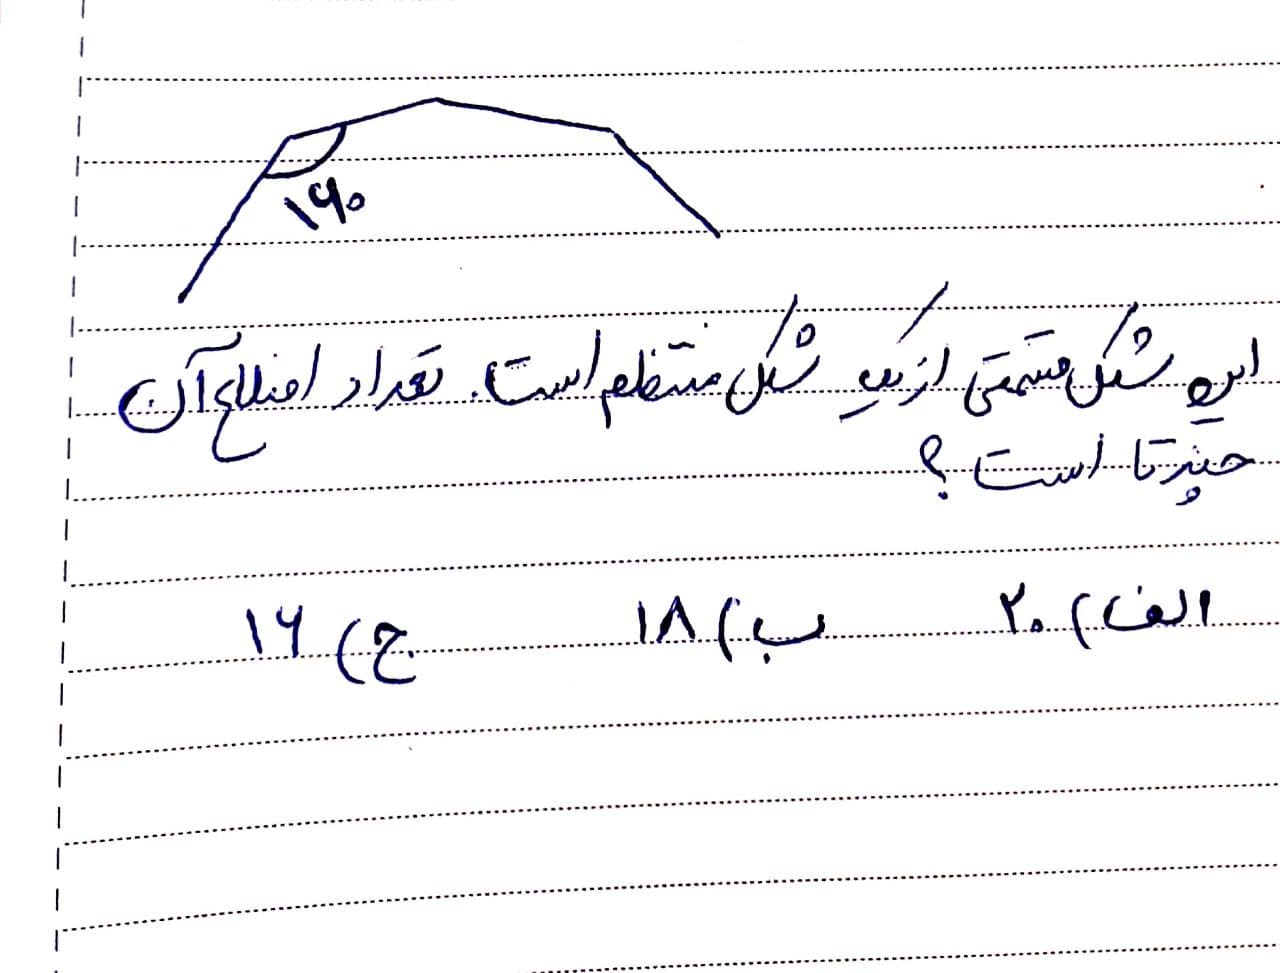 ۱۶۰
این شکل قسمتی از یک شکل منتظم است. تعداد اضلاع آن
چند تا است؟
الف) ۲۰ ب) ۱۸ ج) ۱۶